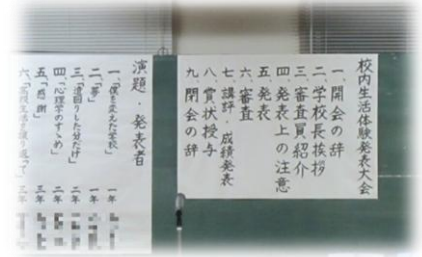 校内生活体験発表大会
一、開会の辞
二、学校長挨拶
三、審査員紹介
四、発表上の注意
五、発表
六、審査
七、講評・成績発表
八、賞状授与
九、閉会の辞
演題・発表者
一、「僕を変えた学校」 一年
二、「夢」 一年
三、「遠回りした分だけ」 二年
四、「心理学のすゝめ」 二年
五、「感謝」 三年
六、「高校生活を振り返って」 三年